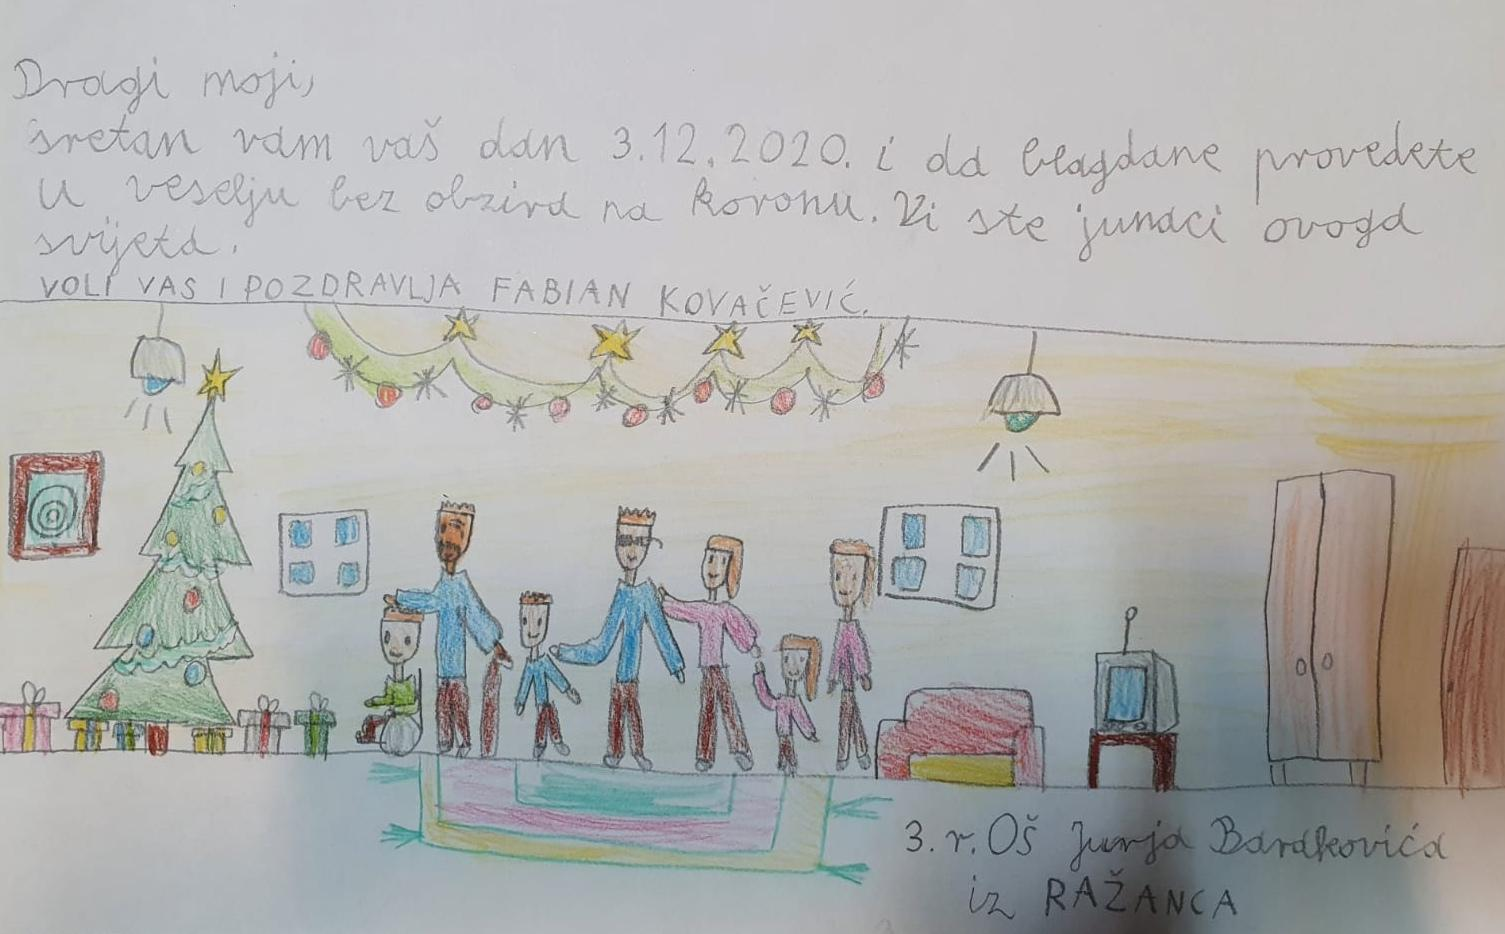 Dragi moji,
sretan vam vaš dan 3.12.2020. i da blagdane provedete
u veselju bez obzira na koronu. Vi ste junaci ovoga
svijeta.
VOLI VAS I POZDRAVLJA FABIAN KOVAČEVIĆ.
3. r. Oš Jurja Barakovića
iz RAŽANCA